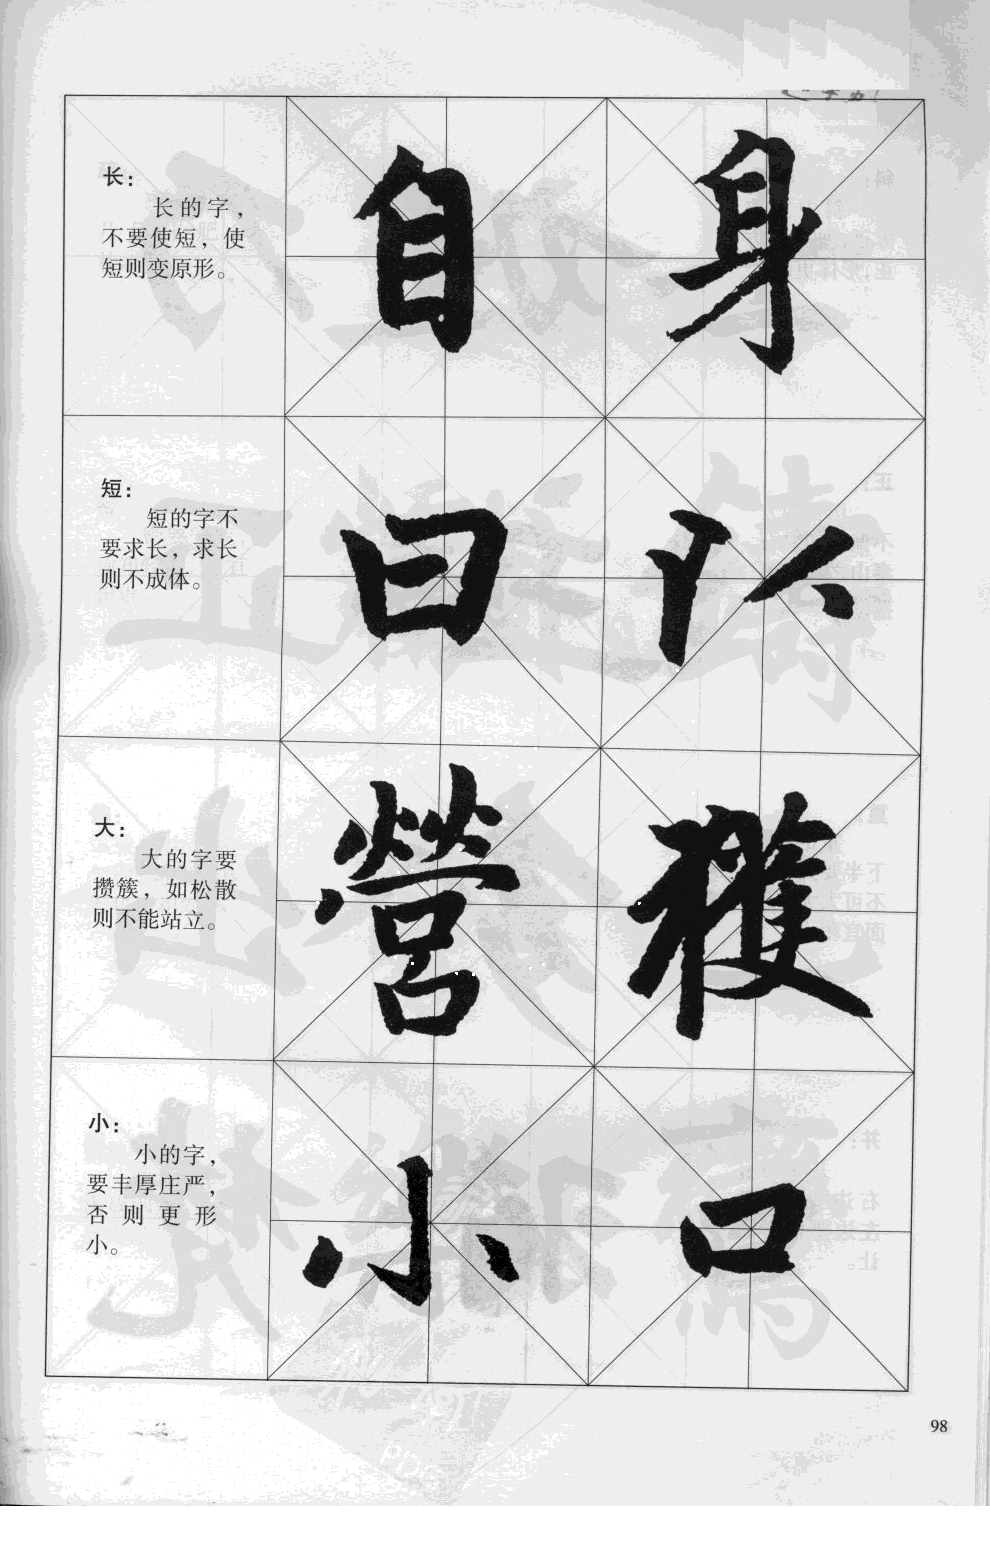 长：
长的字，
不要使短，使
短则变原形。
自 身
短：
短的字不
要求长，求长
则不成体。
曰 以
大：
大的字要
攒簇，如松散
则不能站立。
營 穫
小：
小的字，
要丰厚庄严，
否则更形
小。
小 口
98